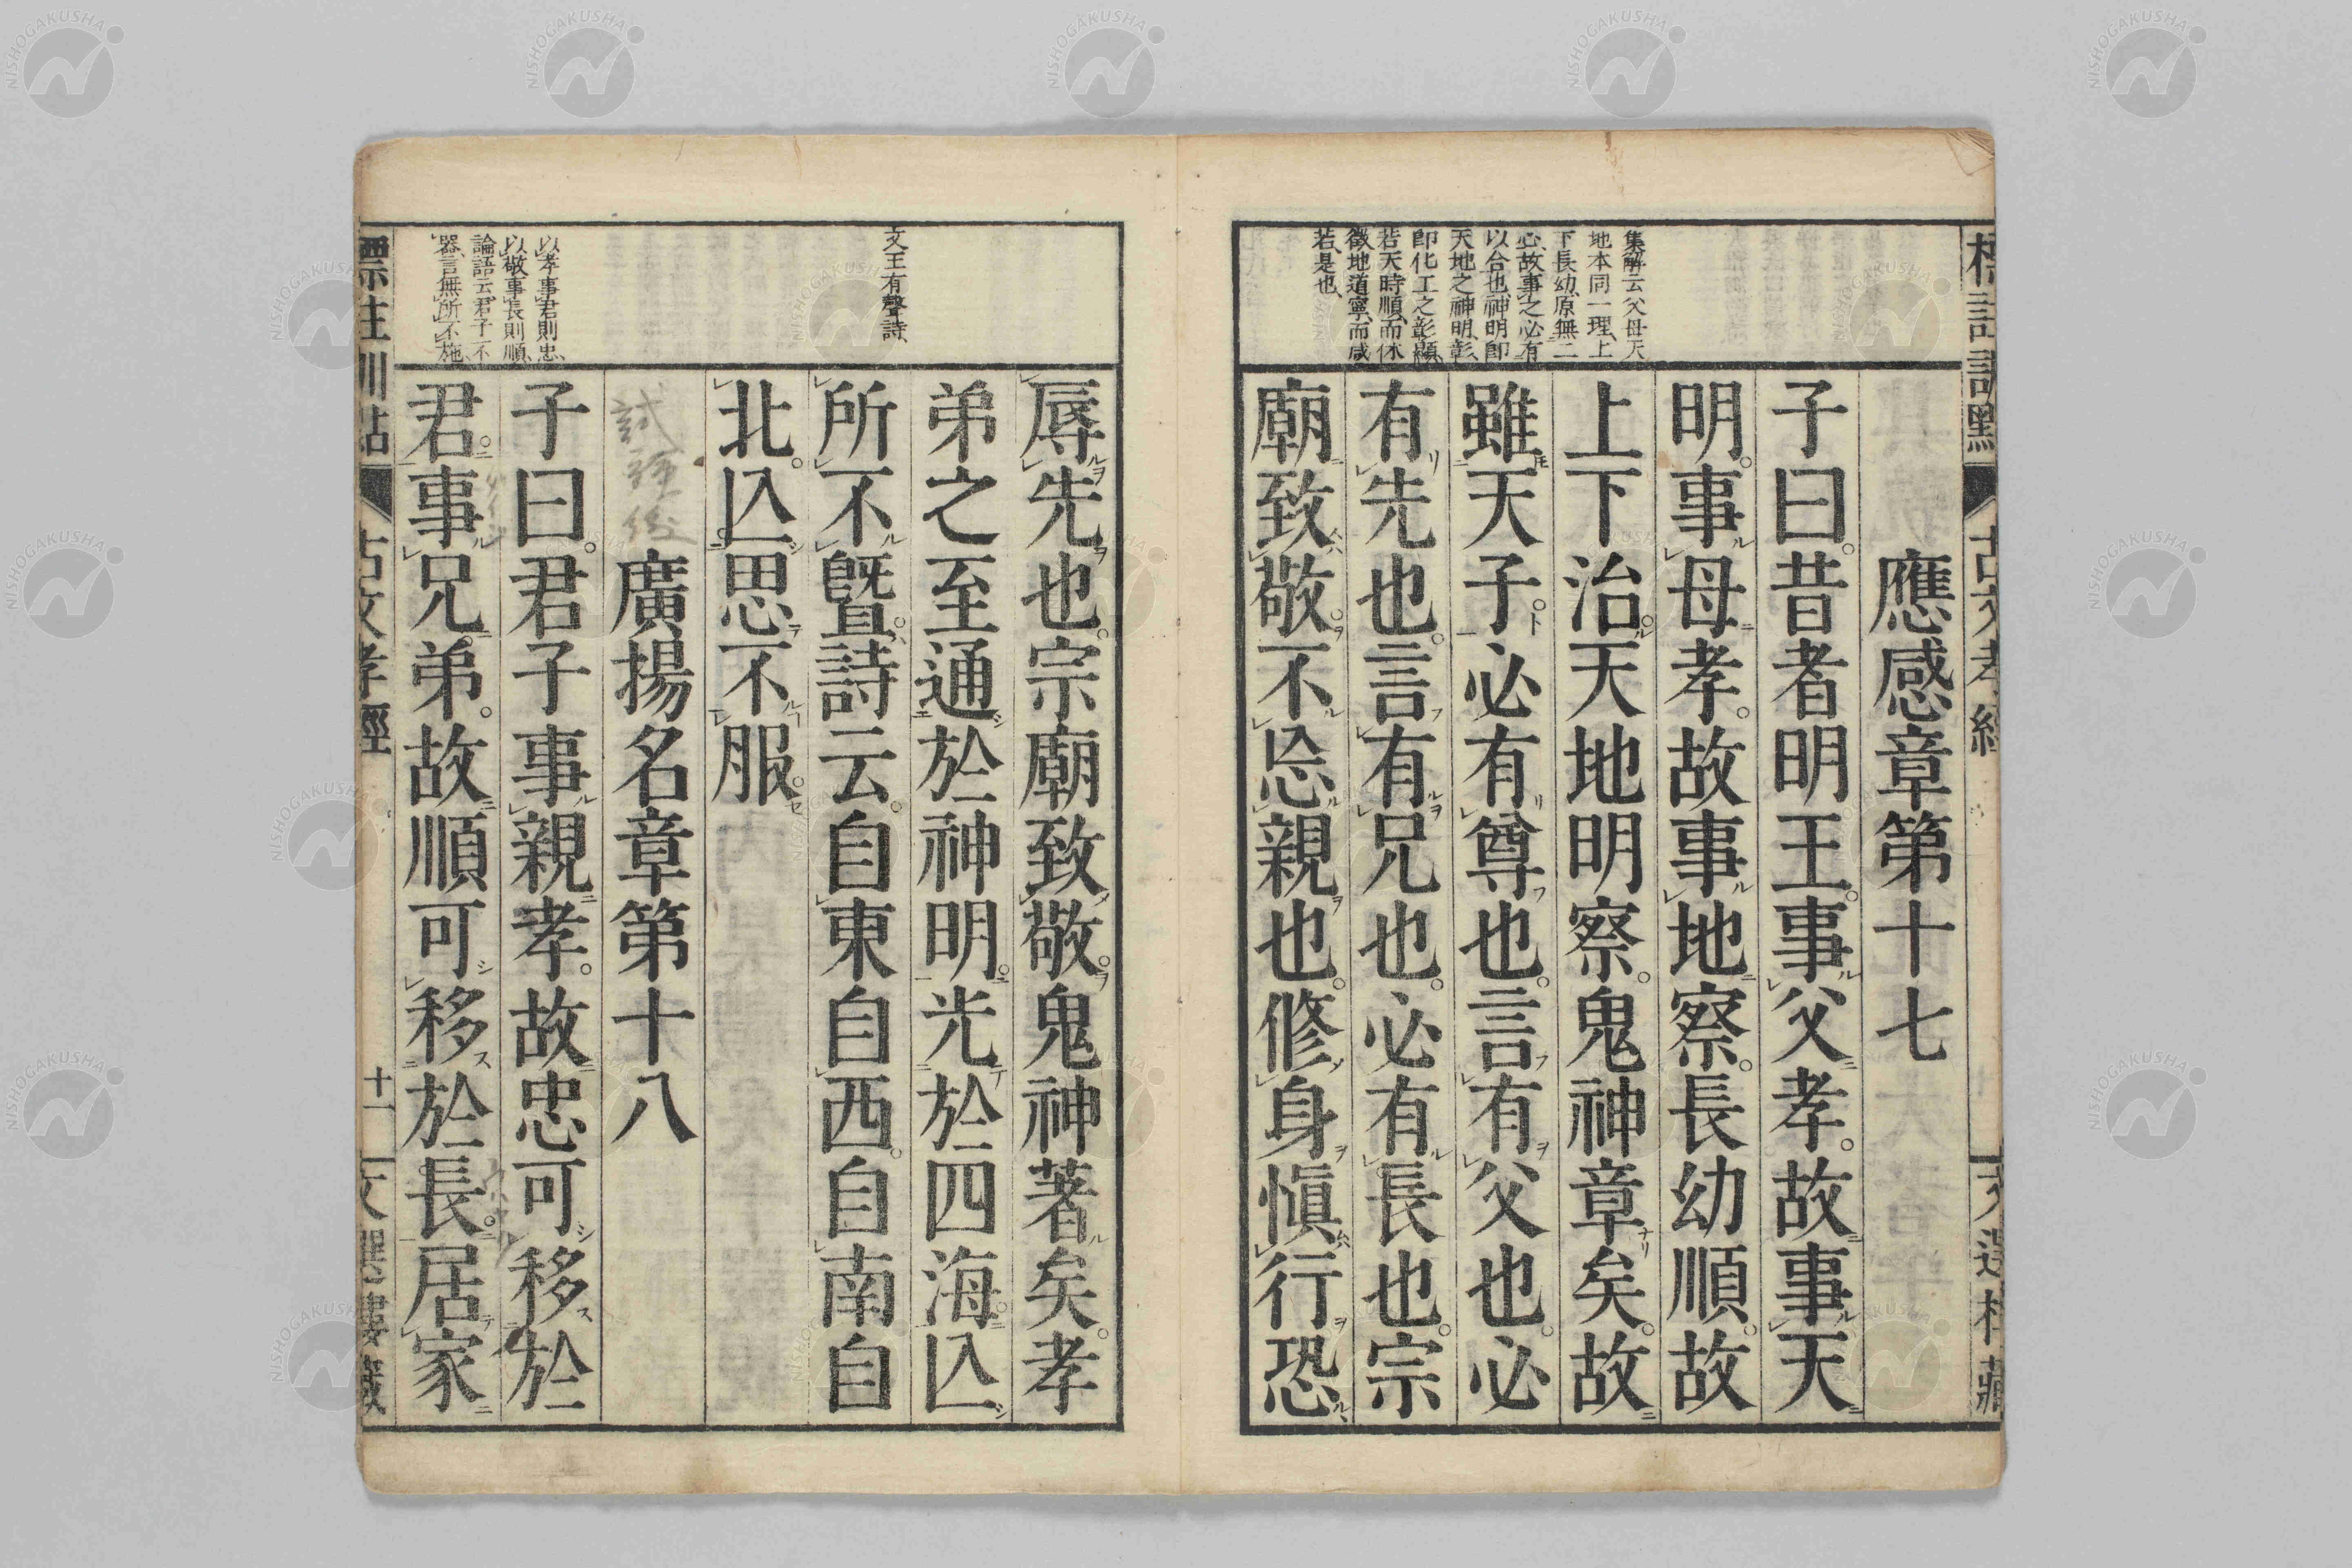 應感章第十七
子曰。昔者明王。事父孝。故事天
明。事母孝。故事地察。長幼順。故
上下治。天地明察。鬼神章矣。故
雖天子。必有尊也。言有父也。必
有先也。言有兄也。必有長也。宗
廟致敬。不忘親也。修身愼行恐
集解云父母天
地本同一理、上
下長幼、原無二
心、故事之必有
以合也神明卽
天地之神明、彰、
卽化工之彰顯、
若天時順、而休
徵、地道寧、而咸
若、是也、
辱先也。宗廟致敬。鬼神著矣。孝
弟之至通於神明。光於四海。亾
所不曁。詩云。自東自西。自南自
北。亾思不服。
廣揚名章第十八
子曰。君子事親孝。故忠可移於
君。事兄弟。故順可移於長。居家
文王有聲詩、
以孝事君則忠、
以敬事長則順、
論語云、君子不
器、言無所不施、
標註訓點
古文孝經
十一
NISHOGAKUSHA